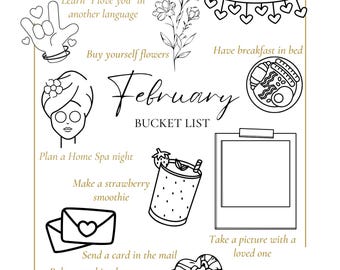 Learn "I love you" in
another language
Buy yourself flowers
Have breakfast in bed
February
BUCKET LIST
Plan a Home Spa night
Make a strawberry
smoothie
Send a card in the mail
Take a picture with a
loved one